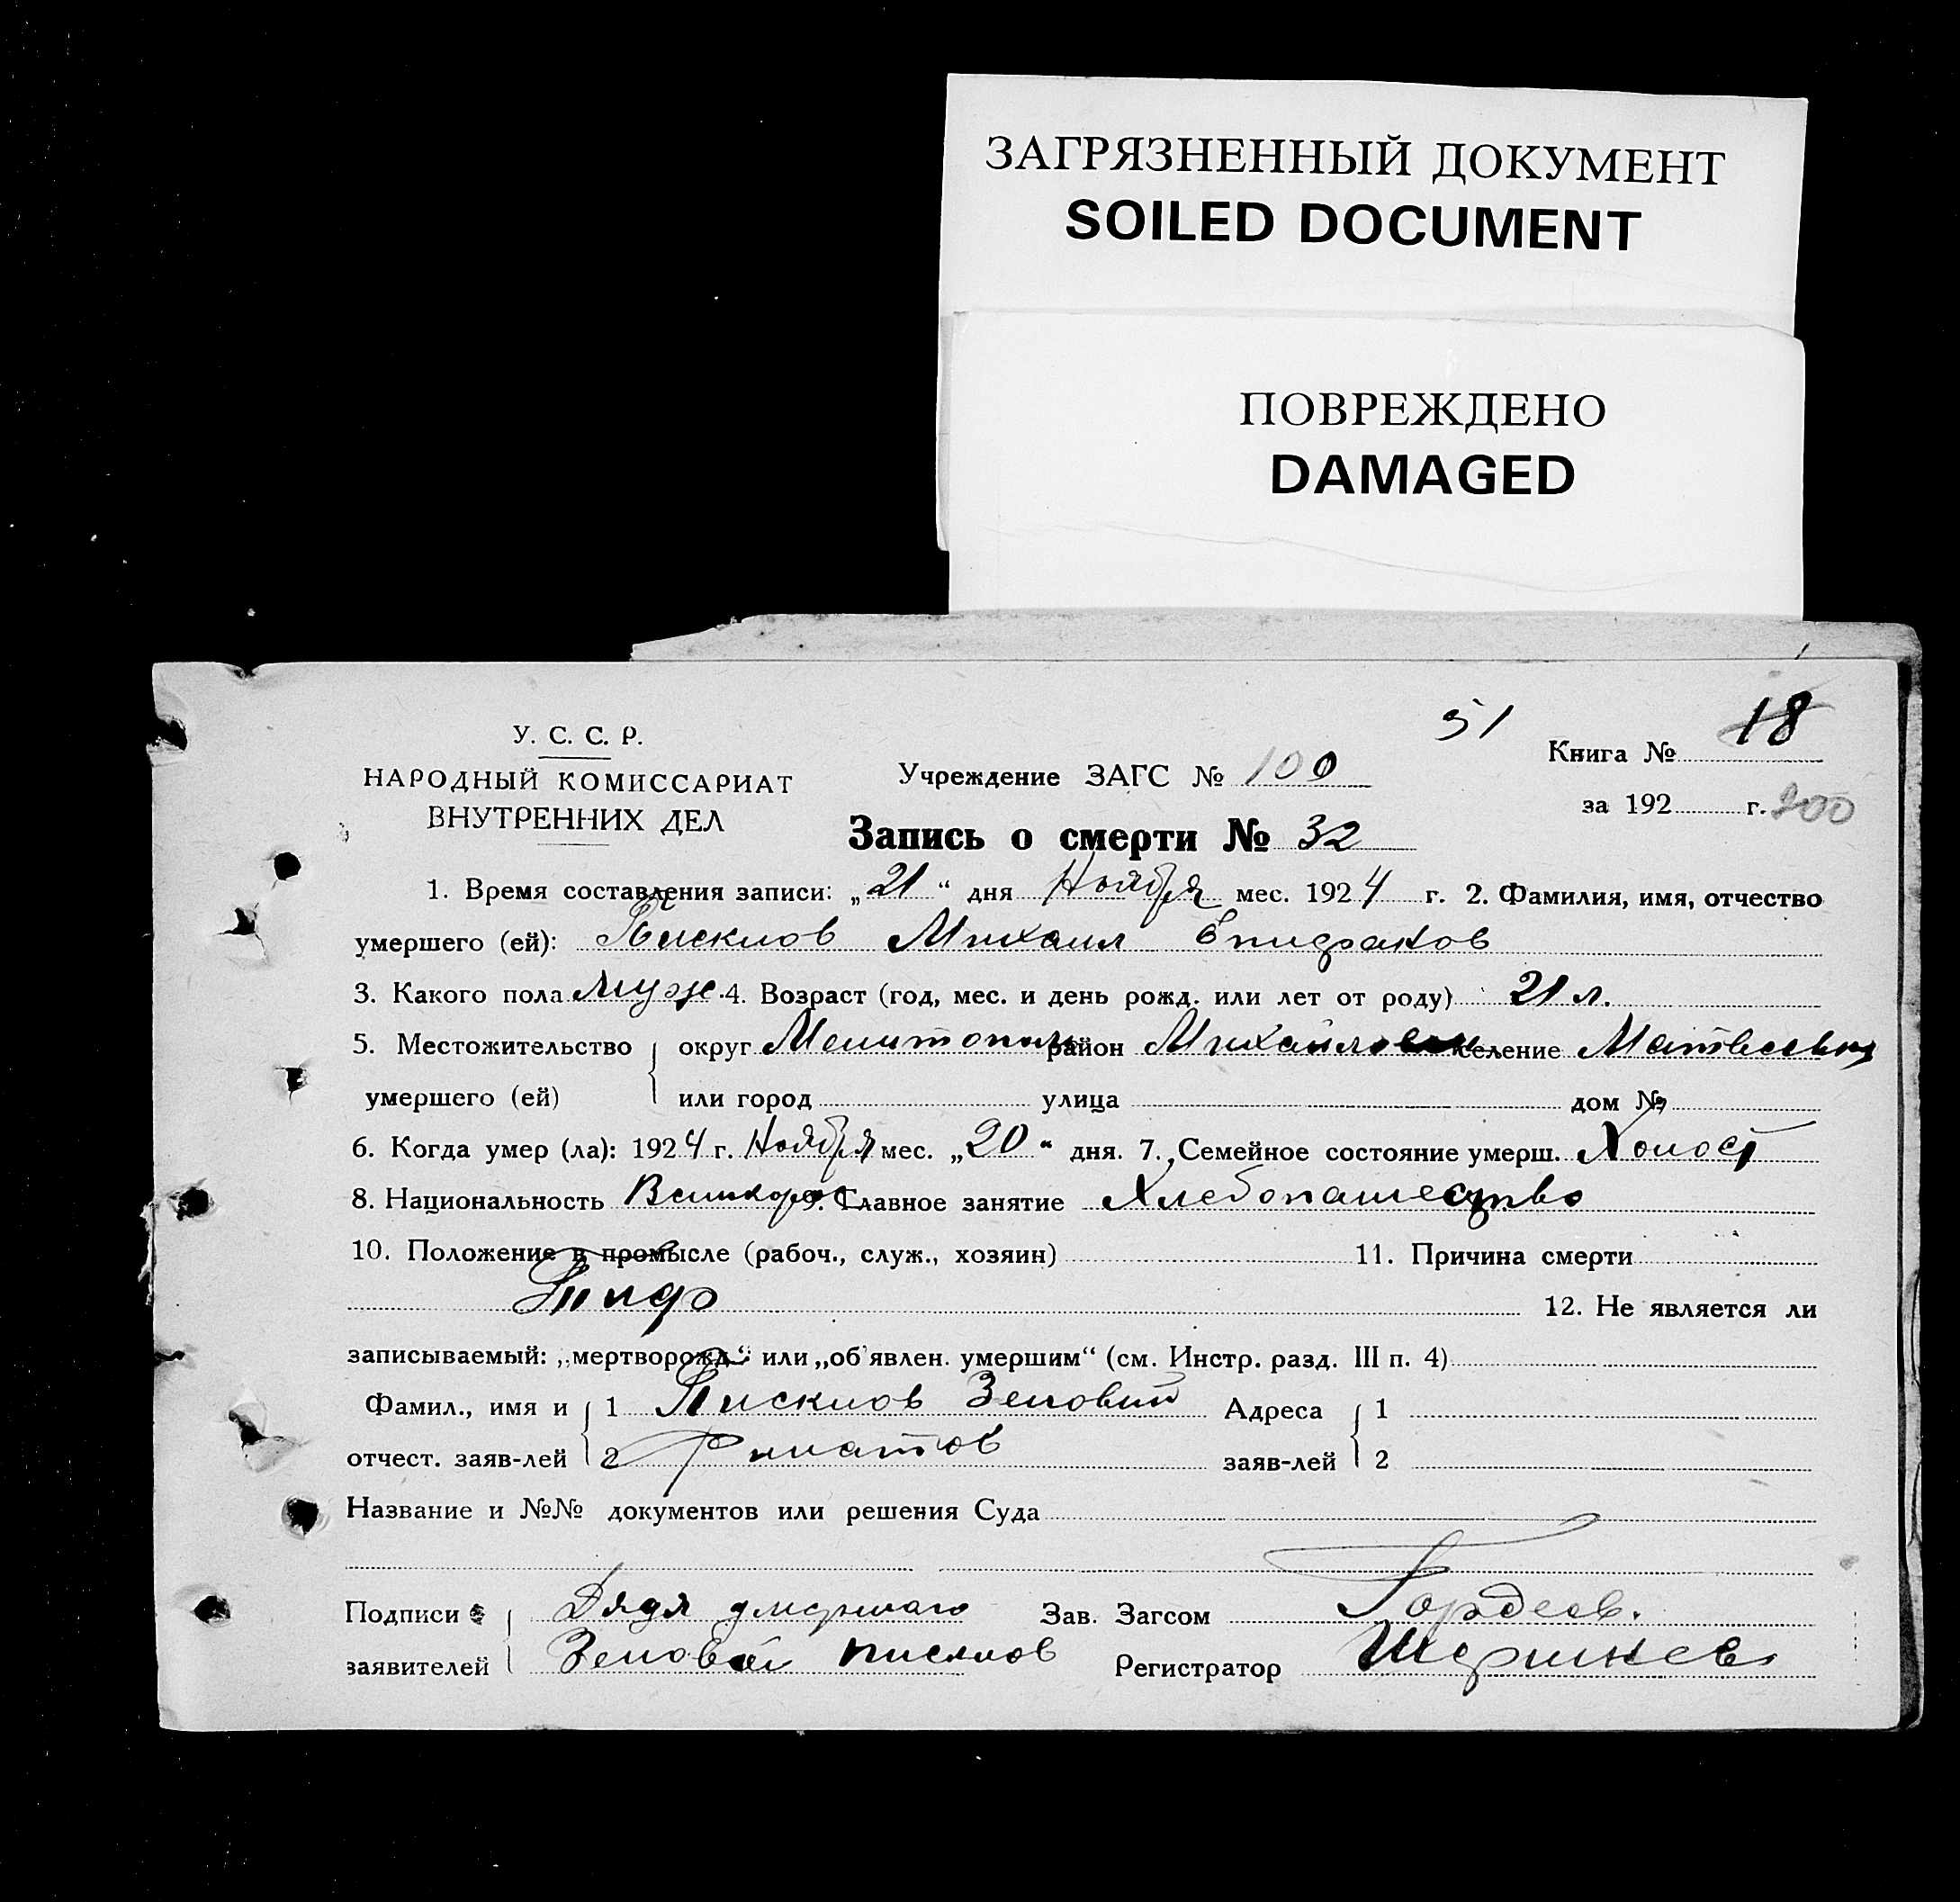 ЗАГРЯЗНЕННЫЙ ДОКУМЕНТ
SOILED DOCUMENT
ПОВРЕЖДЕНО
DAMAGED
51
18
У. С. С. Р.
НАРОДНЫЙ КОМИССАРИАТ
ВНУТРЕННИХ ДЕЛ
Учреждение ЗАГС № 100
Книга №
за 192 г. 200
Запись о смерти № 32
1. Время составления записи: „21“ дня Ноября мес. 1924 г. 2. Фамилия, имя, отчество
умершего (ей): Пискнов Михаил Епифанов
3. Какого пола муж. 4. Возраст (год, мес. и день рожд. или лет от роду) 21 л.
5. Местожительство округ Мелитополь район Михайловск селение Матвеевка
умершего (ей) или город улица дом №
6. Когда умер (ла): 1924 г. Ноября мес. „20“ дня. 7. Семейное состояние умерш. Холост
8. Национальность Великорос 9. Главное занятие Хлебопашество
10. Положение в промысле (рабоч., служ., хозяин) 11. Причина смерти
Тиф
12. Не является ли
записываемый: „мертворожд.“ или „об'явлен. умершим“ (см. Инстр. разд. III п. 4)
Фамил., имя и 1 Зеновий Адреса 1
отчест. заяв-лей 2 заяв-лей 2
Название и №№ документов или решения Суда
Подписи Дядя умершаго Зав. Загсом Гордеев.
заявителей Зеновей Регистратор